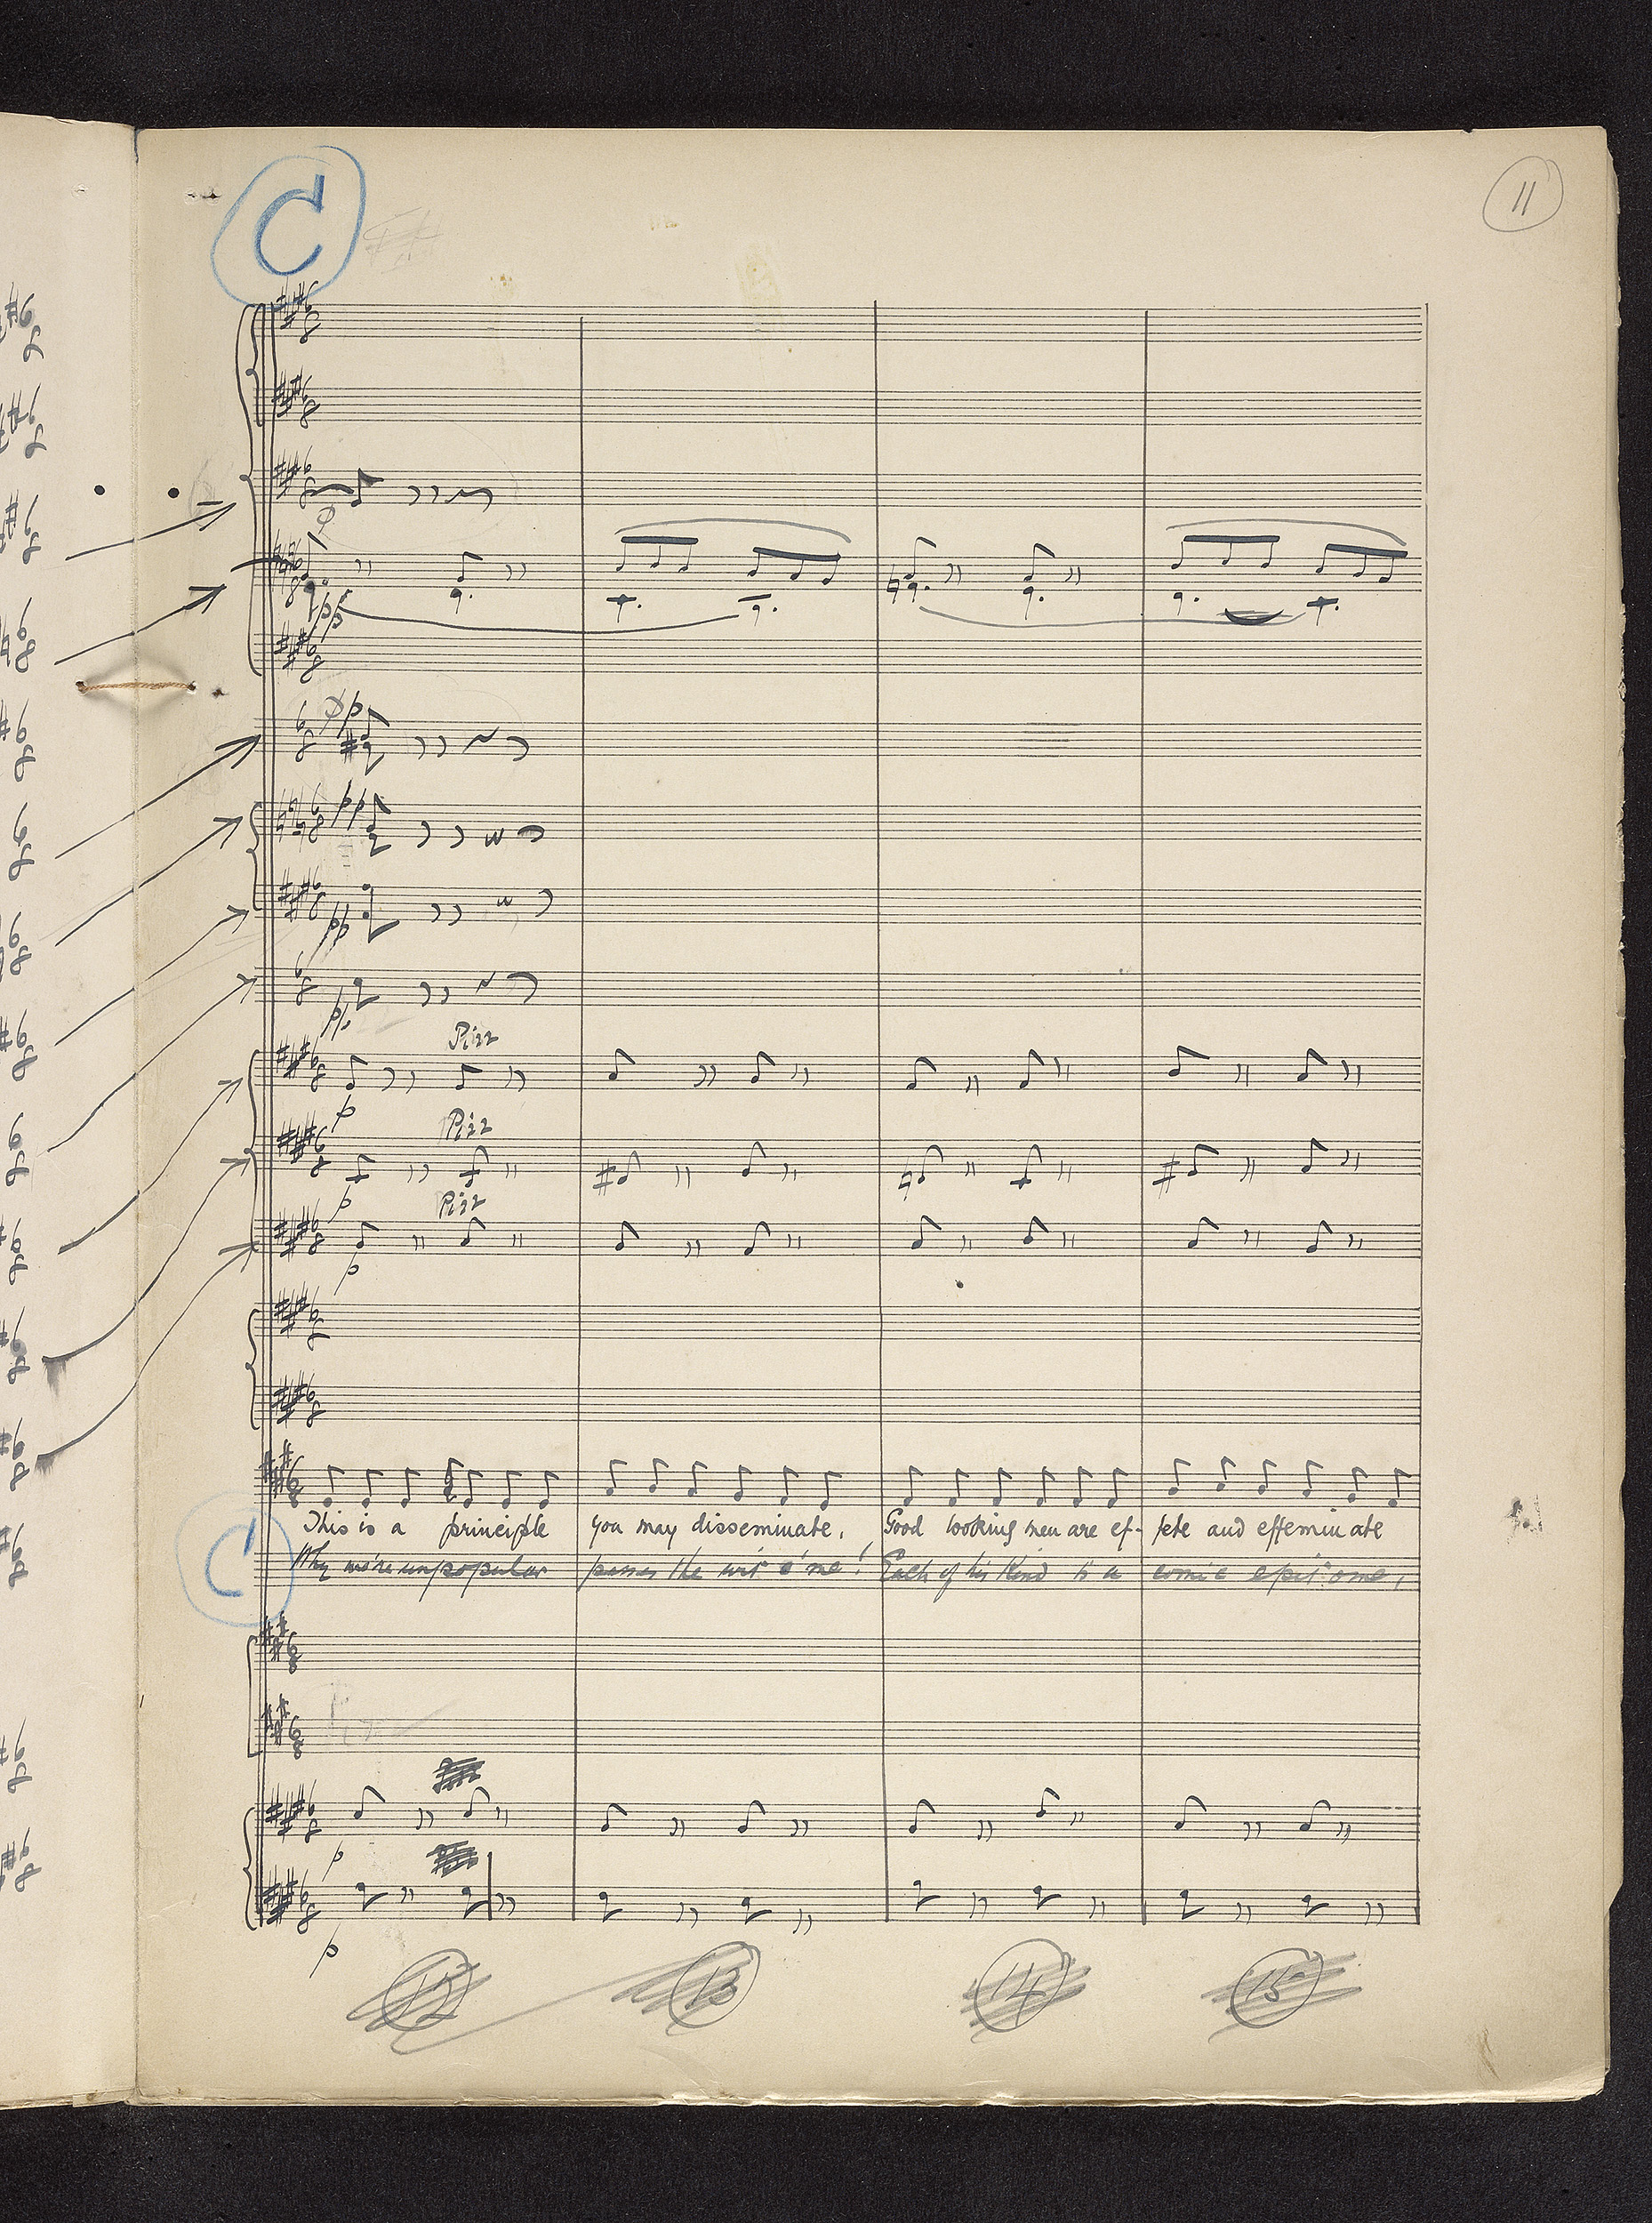 C
11
pp
p
pp
pp
p
Pizz
p
Pizz
p
Pizz
p
This is a principle you may disseminate, Good looking men are ef- fete and effeminate
C Why we're unpopular passes the wit o' me! Each of his kind is a comic epitome,
p
p
12 13 14 15